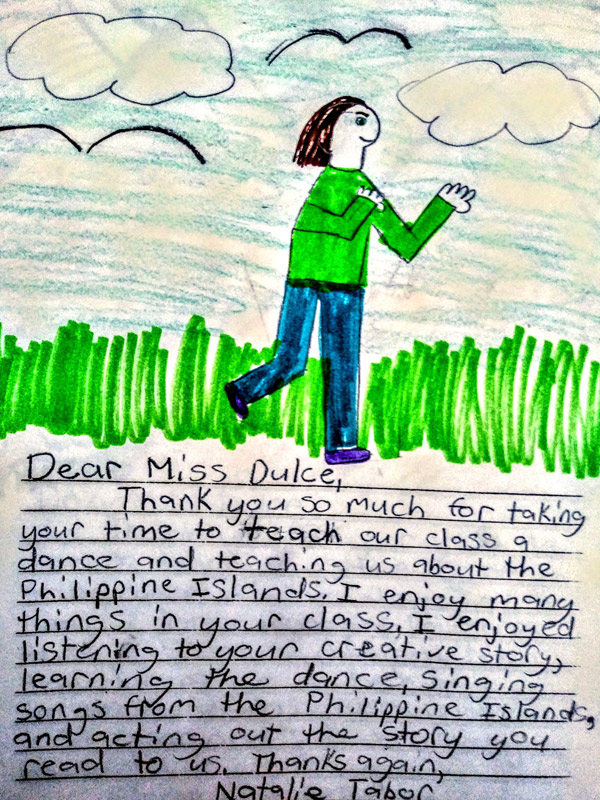 Dear Miss Dulce,
Thank you so much for taking
your time to teach our class a
dance and teaching us about the
Philippine Islands. I enjoy many
things in your class, I enjoyed
listening to your creative story,
learning the dance, singing
songs from the Philippine Islands,
and acting out the story you
read to us. Thanks again,
Natalie Tabor